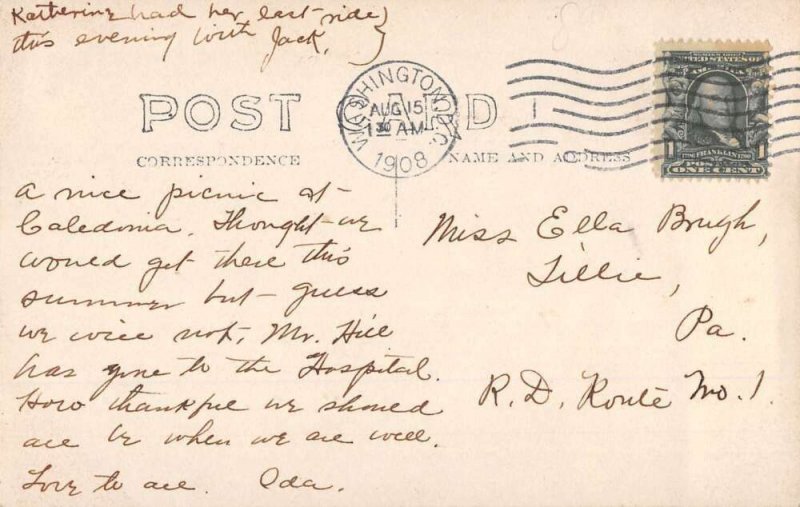 Katherine had her last ride
this evening with Jack.
POST CARD
WASHINGTON, D.C.
AUG 15
1 30 AM
1908
CORRESPONDENCE
NAME AND ADDRESS
UNITED STATES OF
AMERICA
1 FRANKLIN 1
ONE CENT
a nice picnic at
Caledonia. Thought we
would get there this
summer but guess
we will not, Mr. Hill
has gone to the Hospital.
How thankful we should
all be when we are well.
Love to all. Oda.
Miss Ella Brugh,
Tillie,
Pa.
R. D. Route No. 1.